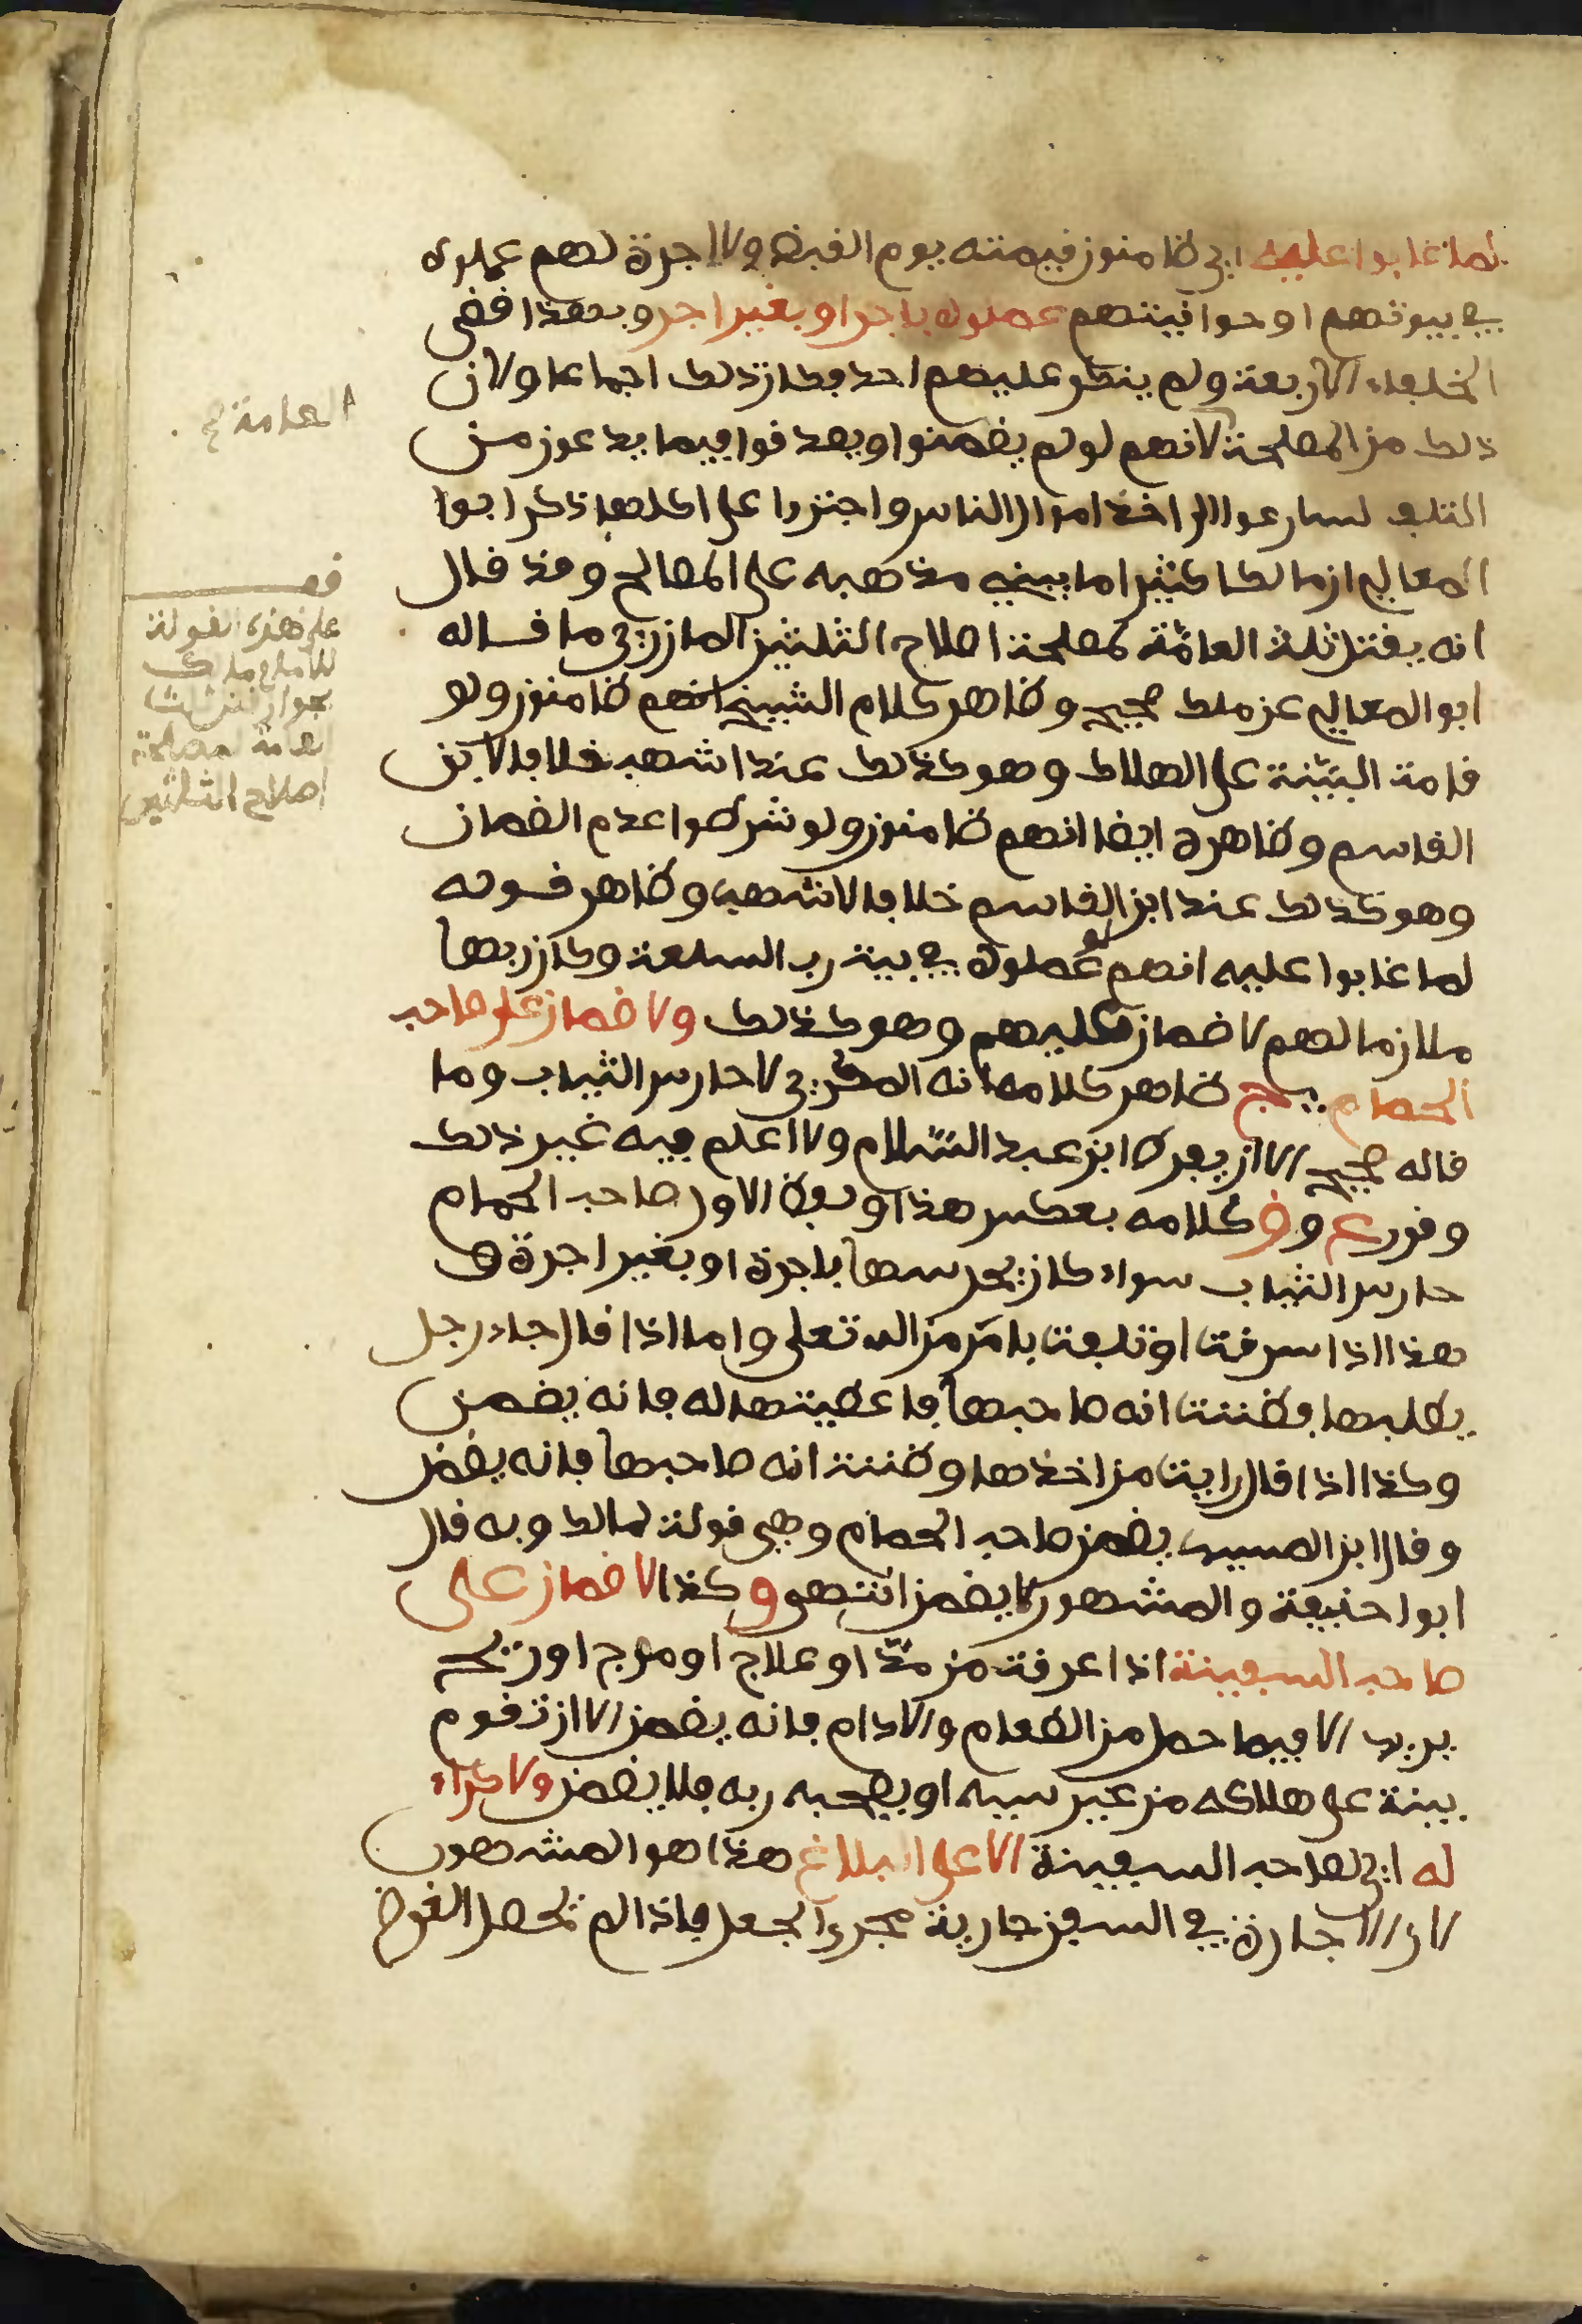 لما غابوا عليه اي ضامنون قيمته يوم القبض ولا اجرة لهم عملوه
في بيوتهم او حوانيتهم عملوه باجر او بغير اجر وبهذا قضى
الخلفاء الاربعة ولم ينكر عليهم احد فكان ذلك اجماعا ولان
ذلك من المصلحة لانهم لو لم يضمنوا ويصدقوا فيما يدعون من
التلف لسارعوا الى اخذ اموال الناس واجتروا على اكلها ذكر ابوا
المعالي ان مالكا كثيرا ما يبني مذهبه على المصالح وقد قال
انه يقتل ثلث العامّة لمصلحة اصلاح الثلثين المازري ما قاله
ابو المعالي عن ملك صحيح وظاهر كلام الشيخ انهم ضامنون ولو
قامت البيّنة على الهلاك وهو كذلك عند اشهب خلافا لابن
القاسم وظاهره ايضا انهم ضامنون ولو شرطوا عدم الضمان
وهو كذلك عند ابن القاسم خلافا لاشهب وظاهر قوله
لما غابوا عليه انهم لو عملوه في بيت رب السلعة وكان ربها
ملازما لهم لا ضمان عليهم وهو كذلك ولا ضمان على صاحب
الحمام ج ظاهر كلامه انه المكري لا حارس الثياب وما
قاله صحيح الا ان يفرط ابن عبد السّلام ولا اعلم فيه غير ذلك
وقرر ع و ق كلامه بعكس هذا ولفظ الاول صاحب الحمام
حارس الثياب سواء كان يحرسها باجرة او بغير اجرة و
هذا اذا سرقت او تلفت بامر من الله تعلى واما اذا قال جاء رجل
يطلبها فظننت انه صاحبها فاعطيتها له فانه يضمن
وكذا اذا قال رايت من اخذها وظننت انه صاحبها فانه يضمن
وقال ابن المسيب يضمن صاحب الحمام وهي قولة لمالك وبه قال
ابوا حنيفة والمشهور لا يضمن انتهى وكذا لا ضمان على
صاحب السفينة اذا غرقت من مدّ او علاج او موج او ريح
يريد الا فيما حمل من الطعام والادام فانه يضمن الا ان تقوم
بينة على هلاكه من غير سببه او يصحبه ربه فلا يضمن ولا كراء
له اي لصاحب السفينة الا على البلاغ هذا هو المشهور
لان الاجارة في السفن جارية مجرى الجعل فاذا لم تحصل الغرض
العامة ج
قف
على هذه القولة
للامام مالك
بجواز قتل ثلث
العامة لمصلحة
اصلاح الثلثين